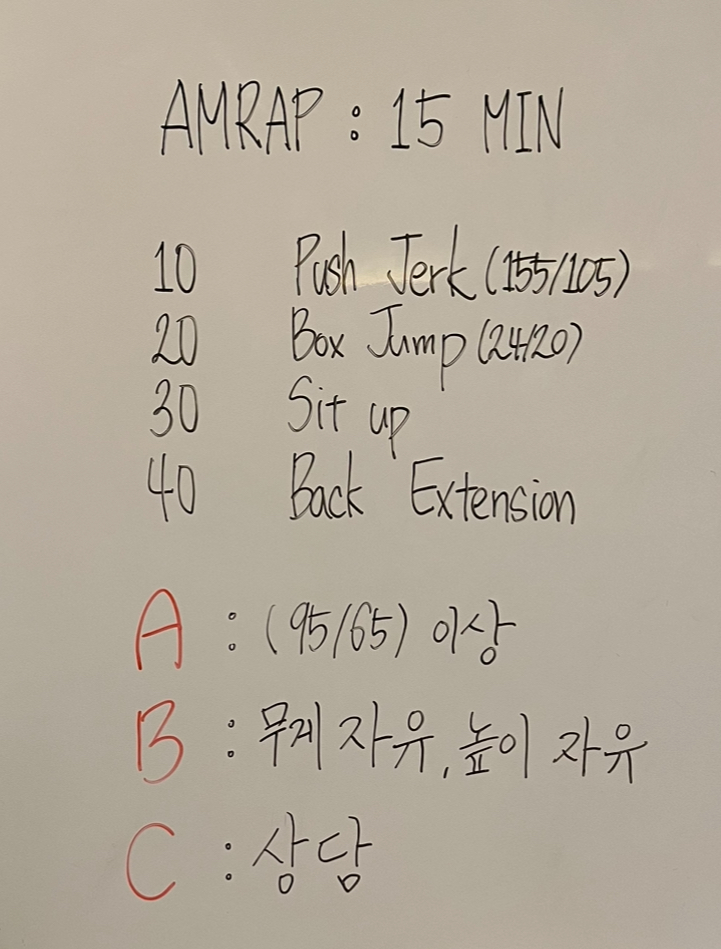 AMRAP : 15 MIN
10 Push Jerk (155/105)
20 Box Jump (24/20)
30 Sit up
40 Back Extension
A : (95/65) 이상
B : 무게 자유, 높이 자유
C : 상담